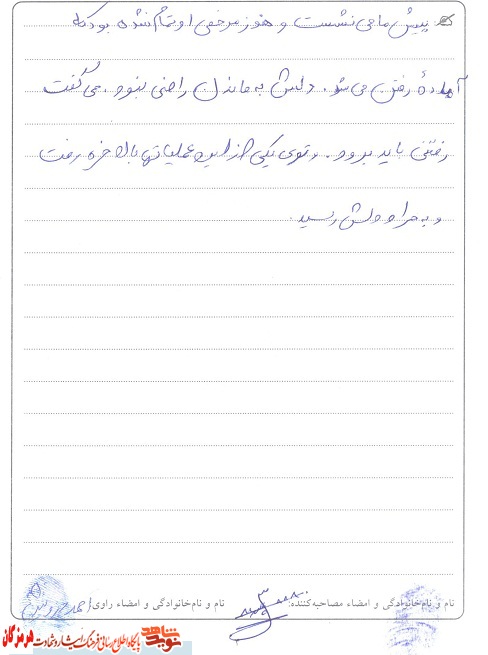 پیش ما می نشست و هنوز مرخصی او تمام نشده بود که
آمادهٔ رفتن می شد. دلش به ماندن راضی نبود. می گفت
رفتنی باید برود. و توی یکی از این عملیاتها بالاخره رفت
و به مراد دلش رسید.
نام و نام‌خانوادگی و امضاء مصاحبه‌کننده:
نام و نام‌خانوادگی و امضاء راوی:
نوید شاهد پایگاه اطلاع رسانی فرهنگ ایثار و شهادت هرمزگان